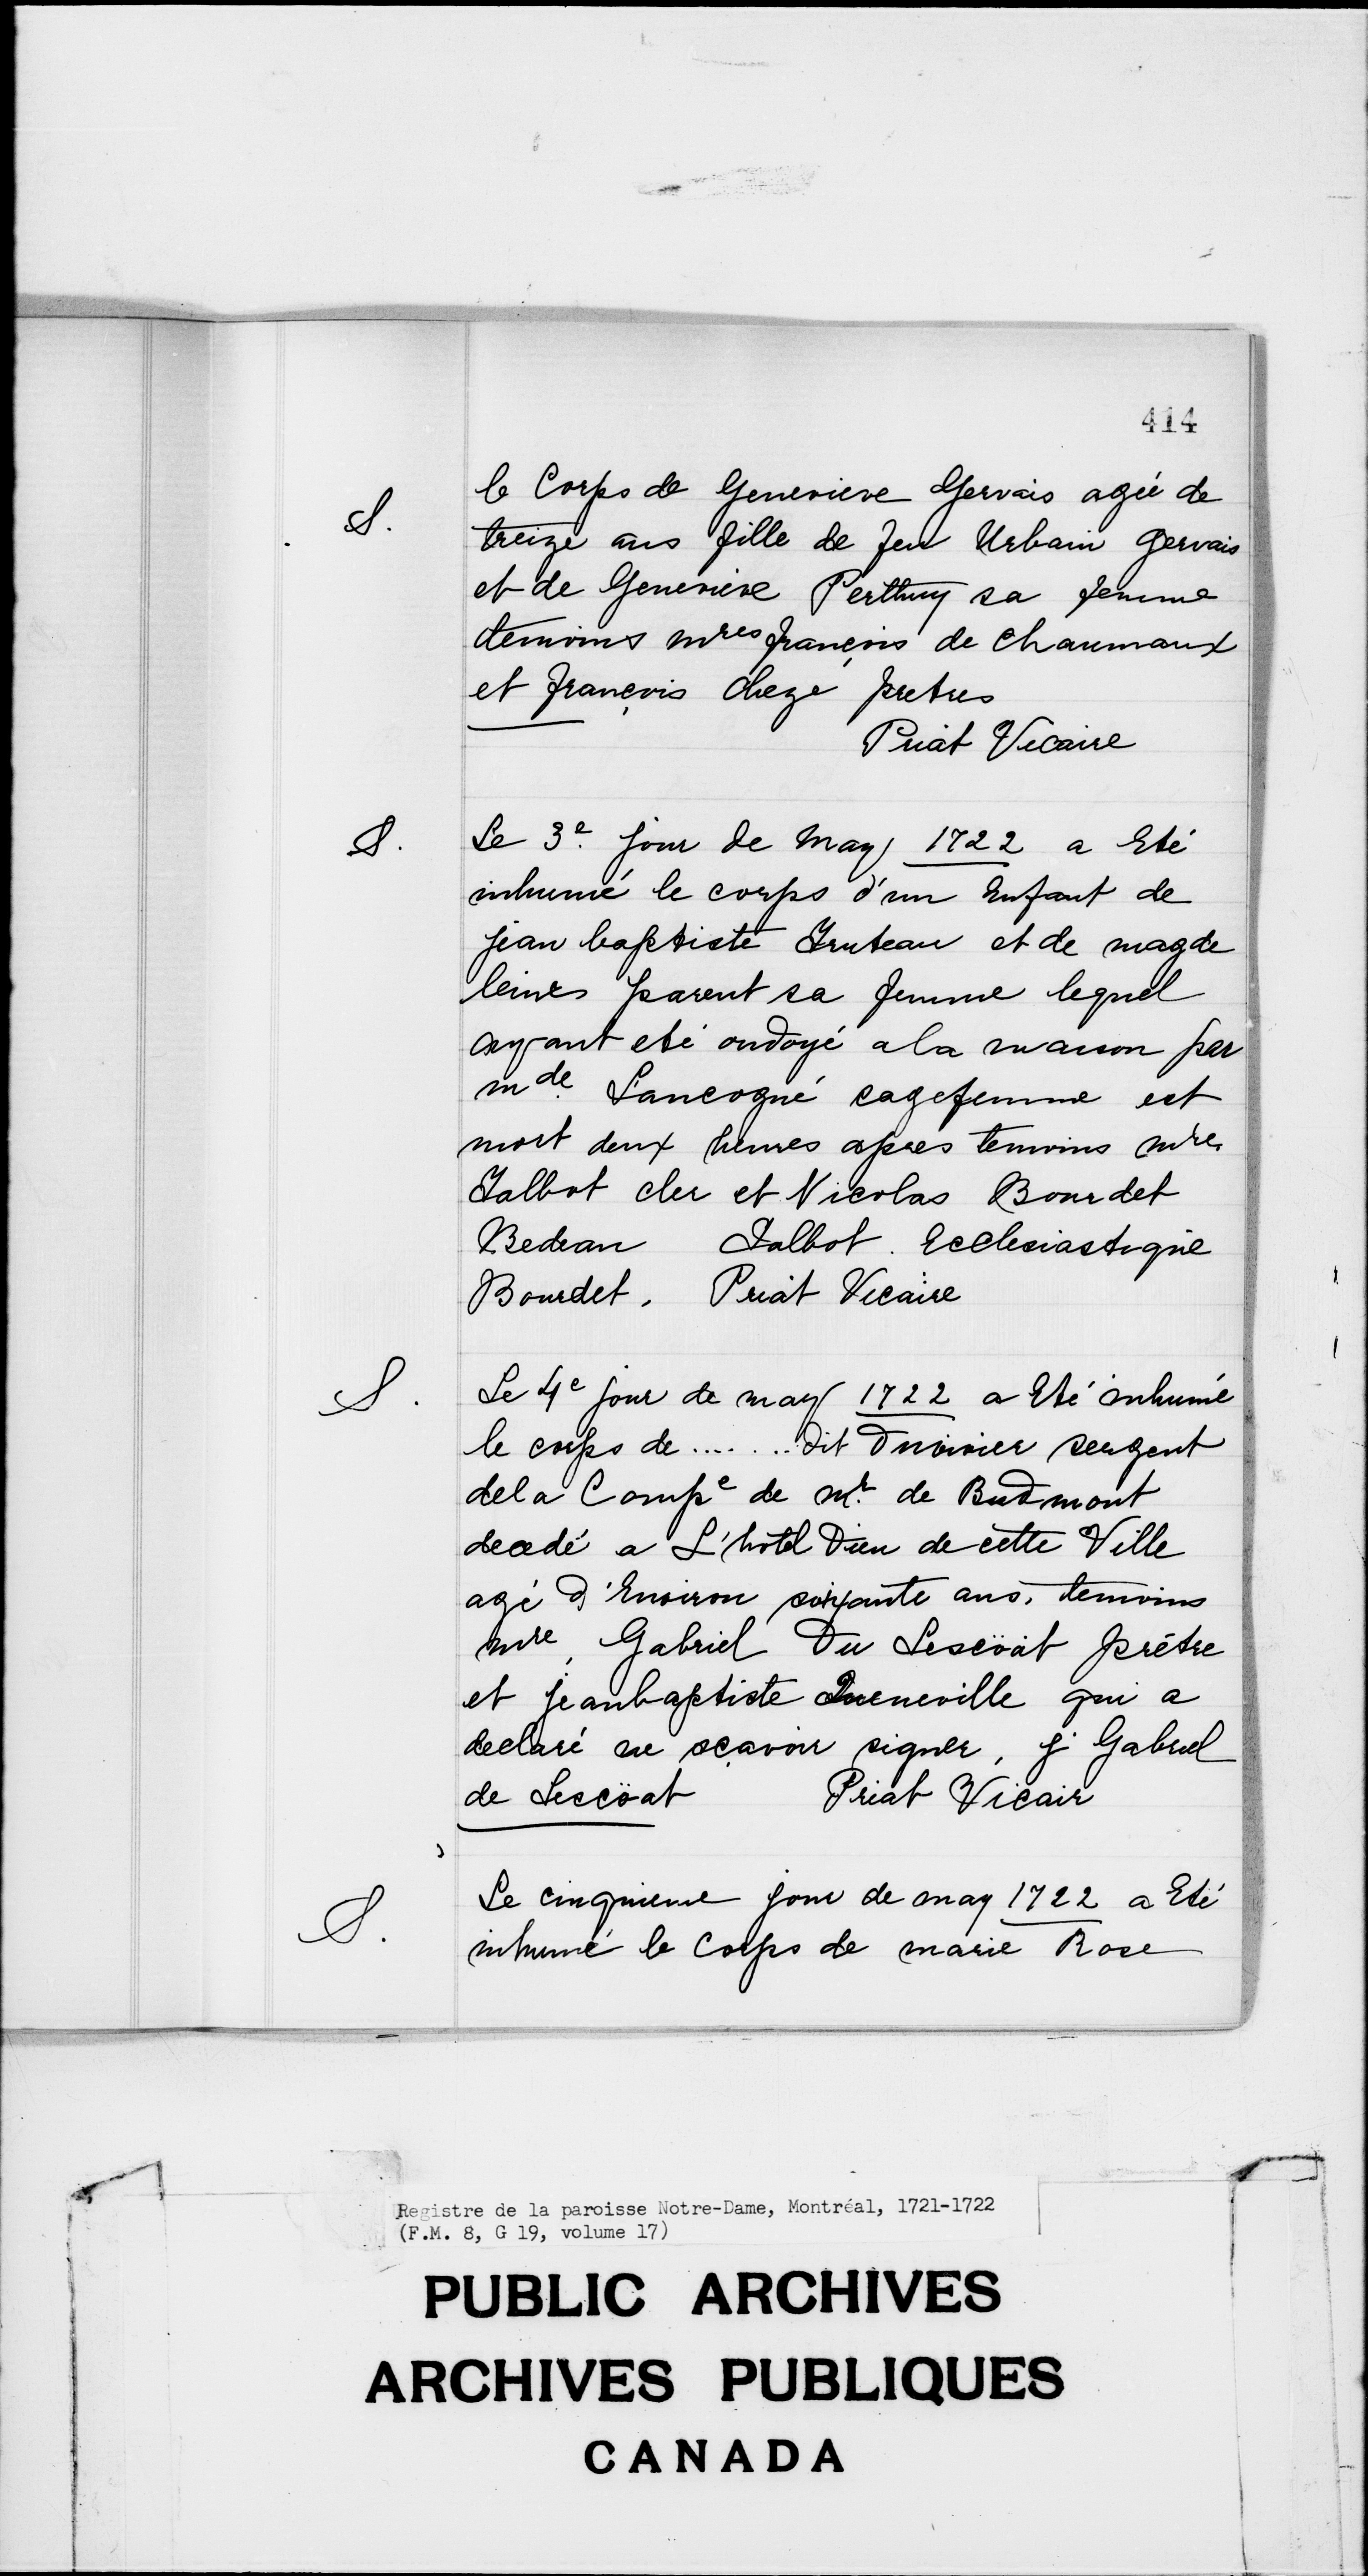 414
S. le Corps de Genevieve Gervais agée de
treize ans fille de feu Urbain Gervais
et de Genevieve Perthuy sa femme
temoins mres françois de Chaumaux
et françois Chezé pretres
Priat Vicaire
S. Le 3e jour de May 1722 a Eté
inhumé le corps d'un Enfant de
jean baptiste Truteau et de magde
leine parent sa femme lequel
ayant eté ondoyé a la maison par
mde Lancogné sagefemme est
mort deux heures apres temoins mre
Talbot cler et Nicolas Bourdet
Bedeau Talbot. Ecclesiastique
Bourdet. Priat Vicaire
S. Le 4e jour de may 1722 a Eté inhumé
le corps de ....... dit Duvivier sergent
dela Compe de mr de Budmont
decedé a L'hotel Dieu de cette Ville
agé d'Environ soixante ans, temoins
mre, Gabriel Du Lescöat prêtre
et jeanbaptiste Queneville qui a
declaré ne sçavoir signer, j Gabriel
de Lescöat Priat Vicair
S. Le cinquieme jour de may 1722 a Eté
inhumé le Corps de marie Rose
Registre de la paroisse Notre-Dame, Montréal, 1721-1722
(F.M. 8, G 19, volume 17)
PUBLIC ARCHIVES
ARCHIVES PUBLIQUES
CANADA